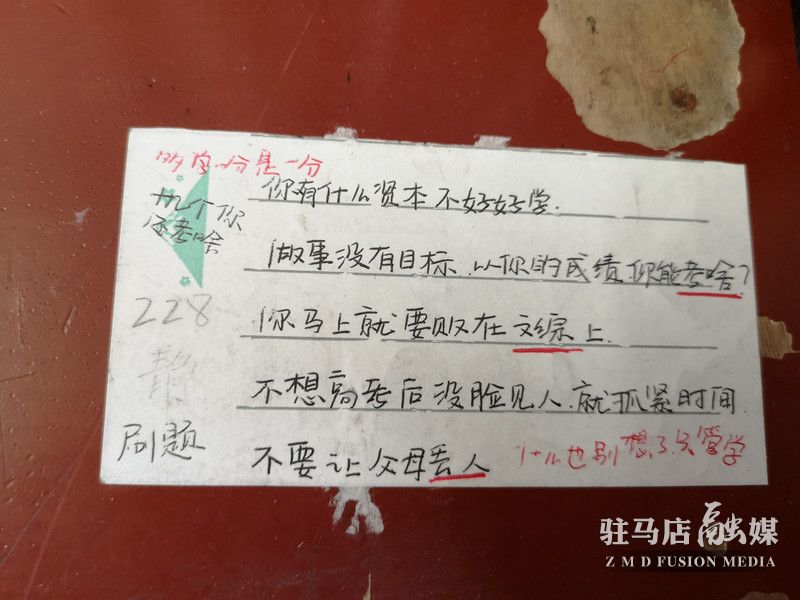 多学一分是一分
你有什么资本不好好学.
做事没有目标.以你的成绩你能考啥?
你马上就要败在文综上.
不想高考后没脸见人.就抓紧时间
不要让父母丢人
什么也别想了只管学
还考啥
228
静
刷题
驻马店融媒
ZMD FUSION MEDIA